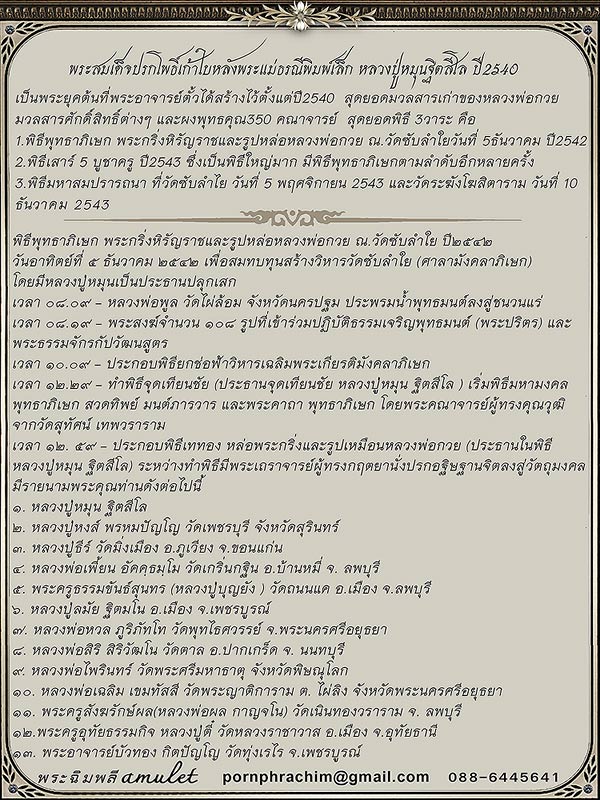 พระสมเด็จปรกโพธิ์เก้าใบหลังพระแม่ธรณีพิมพ์เล็ก หลวงปู่หมุนฐิตสีโล ปี2540
เป็นพระยุคต้นที่พระอาจารย์ตั้วได้สร้างไว้ตั้งแต่ปี2540 สุดยอดมวลสารเก่าของหลวงพ่อกวย
มวลสารศักดิ์สิทธิ์ต่างๆ และผงพุทธคุณ350 คณาจารย์ สุดยอดพิธี 3วาระ คือ
1.พิธีพุทธาภิเษก พระกริ่งหิรัญราชและรูปหล่อหลวงพ่อกวย ณ.วัดซับลำใยวันที่ 5ธันวาคม ปี2542
2.พิธีเสาร์ 5 บูชาครู ปี2543 ซึ่งเป็นพิธีใหญ่มาก มีพิธีพุทธาภิเษกตามลำดับอีกหลายครั้ง
3.พิธีมหาสมปรารถนา ที่วัดซับลำใย วันที่ 5 พฤศจิกายน 2543 และวัดระฆังโฆสิตาราม วันที่ 10
ธันวาคม 2543
พิธีพุทธาภิเษก พระกริ่งหิรัญราชและรูปหล่อหลวงพ่อกวย ณ.วัดซับลำใย ปี๒๕๔๒
วันอาทิตย์ที่ ๕ ธันวาคม ๒๕๔๒ เพื่อสมทบทุนสร้างวิหารวัดซับลำใย (ศาลามังคลาภิเษก)
โดยมีหลวงปู่หมุนเป็นประธานปลุกเสก
เวลา ๐๘.๐๙ – หลวงพ่อพูล วัดไผ่ล้อม จังหวัดนครปฐม ประพรมน้ำพุทธมนต์ลงสู่ชนวนแร่
เวลา ๐๘.๑๙ – พระสงฆ์จำนวน ๑๐๘ รูปที่เข้าร่วมปฏิบัติธรรมเจริญพุทธมนต์ (พระปริตร) และ
พระธรรมจักรกัปวัฒนสูตร
เวลา ๑๐.๐๙ – ประกอบพิธียกช่อฟ้าวิหารเฉลิมพระเกียรติมังคลาภิเษก
เวลา ๑๒.๒๙ – ทำพิธีจุดเทียนชัย (ประธานจุดเทียนชัย หลวงปู่หมุน ฐิตสีโล ) เริ่มพิธีมหามงคล
พุทธาภิเษก สวดทิพย์ มนต์ภารวาร และพระคาถา พุทธาภิเษก โดยพระคณาจารย์ผู้ทรงคุณวุฒิ
จากวัดสุทัศน์ เทพวราราม
เวลา ๑๒. ๕๙ – ประกอบพิธีเททอง หล่อพระกริ่งและรูปเหมือนหลวงพ่อกวย (ประธานในพิธี
หลวงปู่หมุน ฐิตสีโล) ระหว่างทำพิธีมีพระเถราจารย์ผู้ทรงกฤตยานั่งปรกอฐิษฐานจิตลงสู่วัตถุมงคล
มีรายนามพระคุณท่านดังต่อไปนี้
๑. หลวงปู่หมุน ฐิตสีโล
๒. หลวงปู่หงส์ พรหมปัญโญ วัดเพชรบุรี จังหวัดสุรินทร์
๓. หลวงปู่ธีร์ วัดมิ่งเมือง อ.ภูเวียง จ.ขอนแก่น
๔. หลวงพ่อเพี้ยน อัคคฺธมฺโม วัดเกริ่นกฐิน อ.บ้านหมี่ จ. ลพบุรี
๕. พระครูธรรมขันธ์สุนทร (หลวงปู่บุญยัง ) วัดถนนแค อ.เมือง จ.ลพบุรี
๖. หลวงปู่ลมัย ฐิตมโน อ.เมือง จ.เพชรบูรณ์
๗. หลวงพ่อหวล ภูริภัทโท วัดพุทไธศวรรย์ จ.พระนครศรีอยุธยา
๘. หลวงพ่อสิริ สิริวัฒโน วัดตาล อ.ปากเกร็ด จ. นนทบุรี
๙. หลวงพ่อไพรินทร์ วัดพระศรีมหาธาตุ จังหวัดพิษณุโลก
๑๐. หลวงพ่อเฉลิม เขมทัสสี วัดพระญาติการาม ต. ไผ่ลิง จังหวัดพระนครศรีอยุธยา
๑๑. พระครูสังฆรักษ์ผล(หลวงพ่อผล กาญจโน) วัดเนินทองวราราม จ. ลพบุรี
๑๒.พระครูอุทัยธรรมกิจ หลวงปู่ตี๋ วัดหลวงราชาวาส อ.เมือง จ.อุทัยธานี
๑๓. พระอาจารย์บัวทอง กิตปัญโญ วัดทุ่งเรไร จ.เพชรบูรณ์
พระฉิมพลี amulet pornphrachim@gmail.com 088-6445641